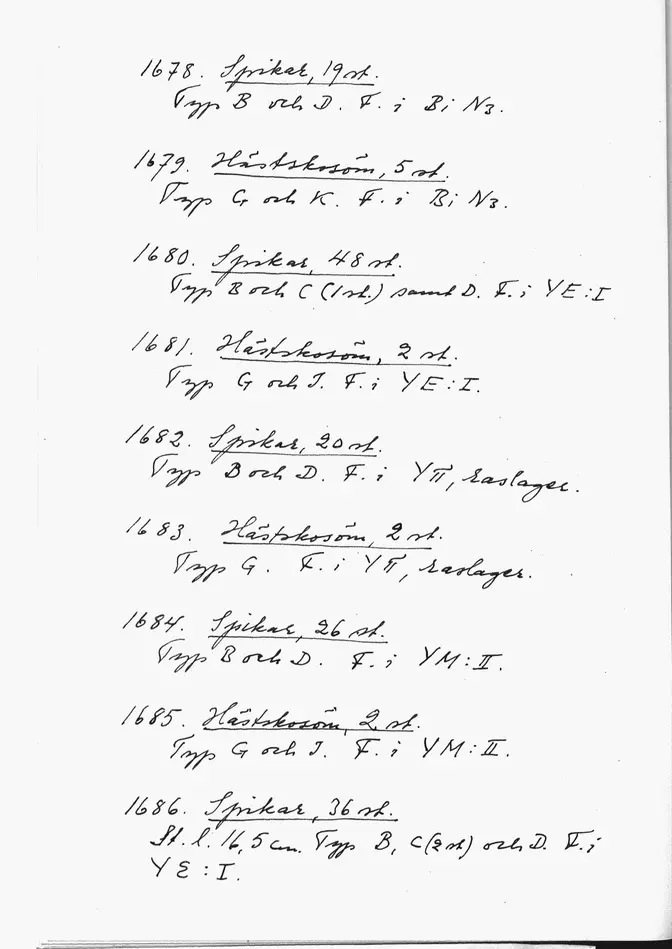 1678. Spikar, 19 st.
Typ B och D. F. i Bi N3.
1679. Hästskosöm, 5 st.
Typ G och K. F. i Bi N3.
1680. Spikar, 48 st.
Typ B och C (1 st.) samt D. F. i YE:I
1681. Hästskosöm, 2 st.
Typ G och J. F. i YE:I.
1682. Spikar, 20 st.
Typ B och D. F. i YTT, raslager.
1683. Hästskosöm, 2 st.
Typ G. F. i YTT, raslager.
1684. Spikar, 26 st.
Typ B och D. F. i YM:II.
1685. Hästskosöm, 2 st.
Typ G och J. F. i YM:II.
1686. Spikar, 36 st.
St. l. 16,5 cm. Typ B, C (2 st) och D. F. i
YE:I.